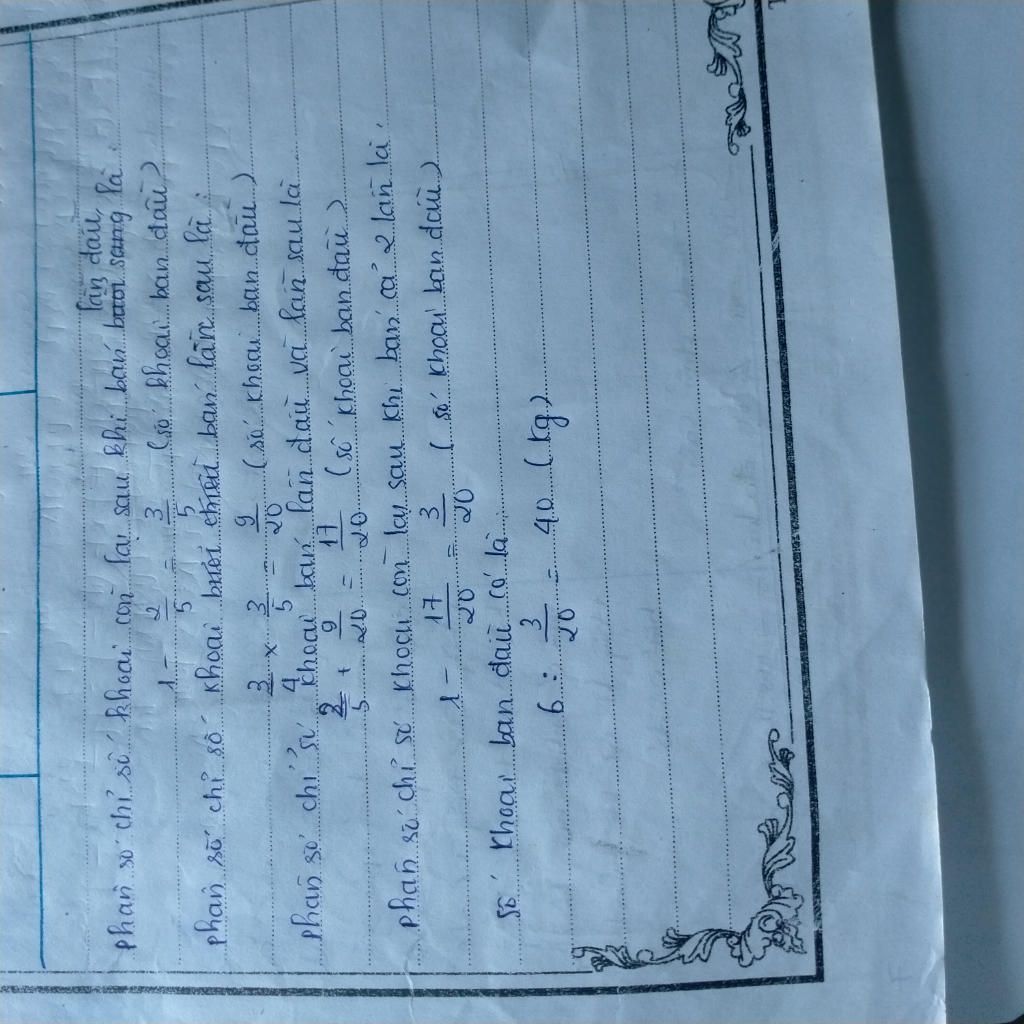 lần đầu,
phân số chỉ số khoai còn lại sau khi bán buổi sang là.
1 - 2/5 = 3/5 (số khoai ban đầu)
phân số chỉ số khoai buổi chiều bán lần sau là:
3/4 × 3/5 = 9/20 (số khoai ban đầu)
phân số chỉ số khoai bán lần đầu và lần sau là
2/5 + 9/20 = 17/20 (số khoai ban đầu)
phân số chỉ số khoai còn lại sau khi bán cả 2 lần là.
1 - 17/20 = 3/20 (số khoai ban đầu)
số khoai ban đầu có là.
6 : 3/20 = 40 (kg)